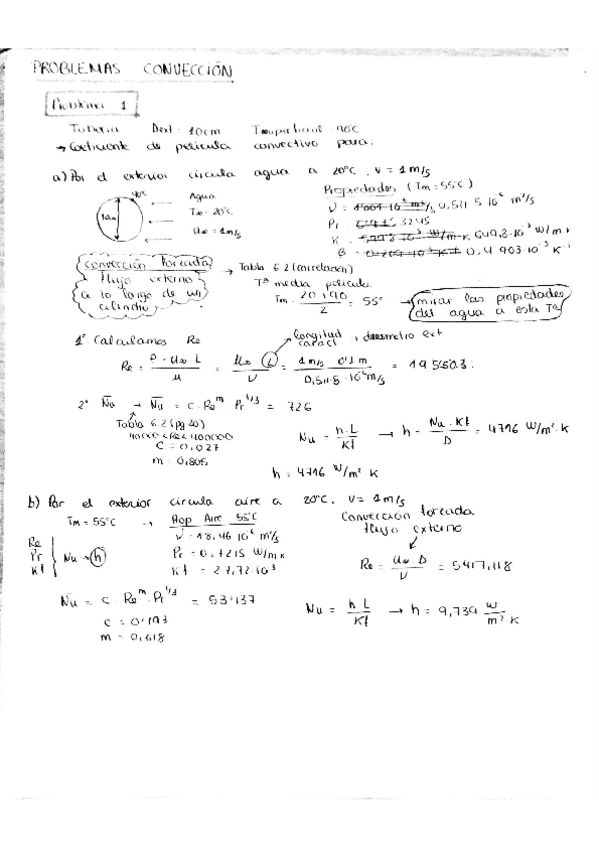 PROBLEMAS CONVECCIÓN
Problema 1
Tuberia Dext: 10cm Tsuperficial: 90ºC
→ Coeficiente de película convectivo para:
a) Por el exterior circula agua a 20ºC. V = 1 m/s
Propiedades (Tm = 55ºC)
90ºC
10cm
Agua
T∞ = 20ºC
u∞ = 1 m/s
Pr 3245
convección forzada
flujo externo
a lo largo de un
cilindro
→ Tabla 6.2 (correlación)
Tª media película
Tm = 20+90 / 2 = 55º → mirar las propiedades del agua a esta Tª
1º Calculamos Re
longitud caract, diametro ext
Re = ρ · u∞ L / μ = u∞ L / ν = 1 m/s 0'1 m / 0,5118 · 10⁻⁶ m²/s =
2º Nu → Nu = c · Re^m Pr^1/3 = 726
Tabla 6.2 (pg 20)
40000 < Re < 400000
C = 0,027
m = 0,805
Nu = h · L / Kf → h = Nu · Kf / D = 4716 W/m² · K
h = 4716 W/m² K
b) Por el exterior circula aire a 20ºC. V = 1 m/s
Convección forzada
flujo externo
Tm = 55ºC → Prop Aire 55ºC
ν = 18,46 10⁻⁶ m²/s
Pr = 0,7215 W/m K
Kf = 27,72 10⁻³
Re
Pr
Kf
Nu → h
Re = u∞ · D / ν = 5417,118
Nu = c · Re^m · Pr^1/3 = 53'137
c = 0'193
m = 0,618
Nu = h L / Kf → h = 9,739 W / m² · K